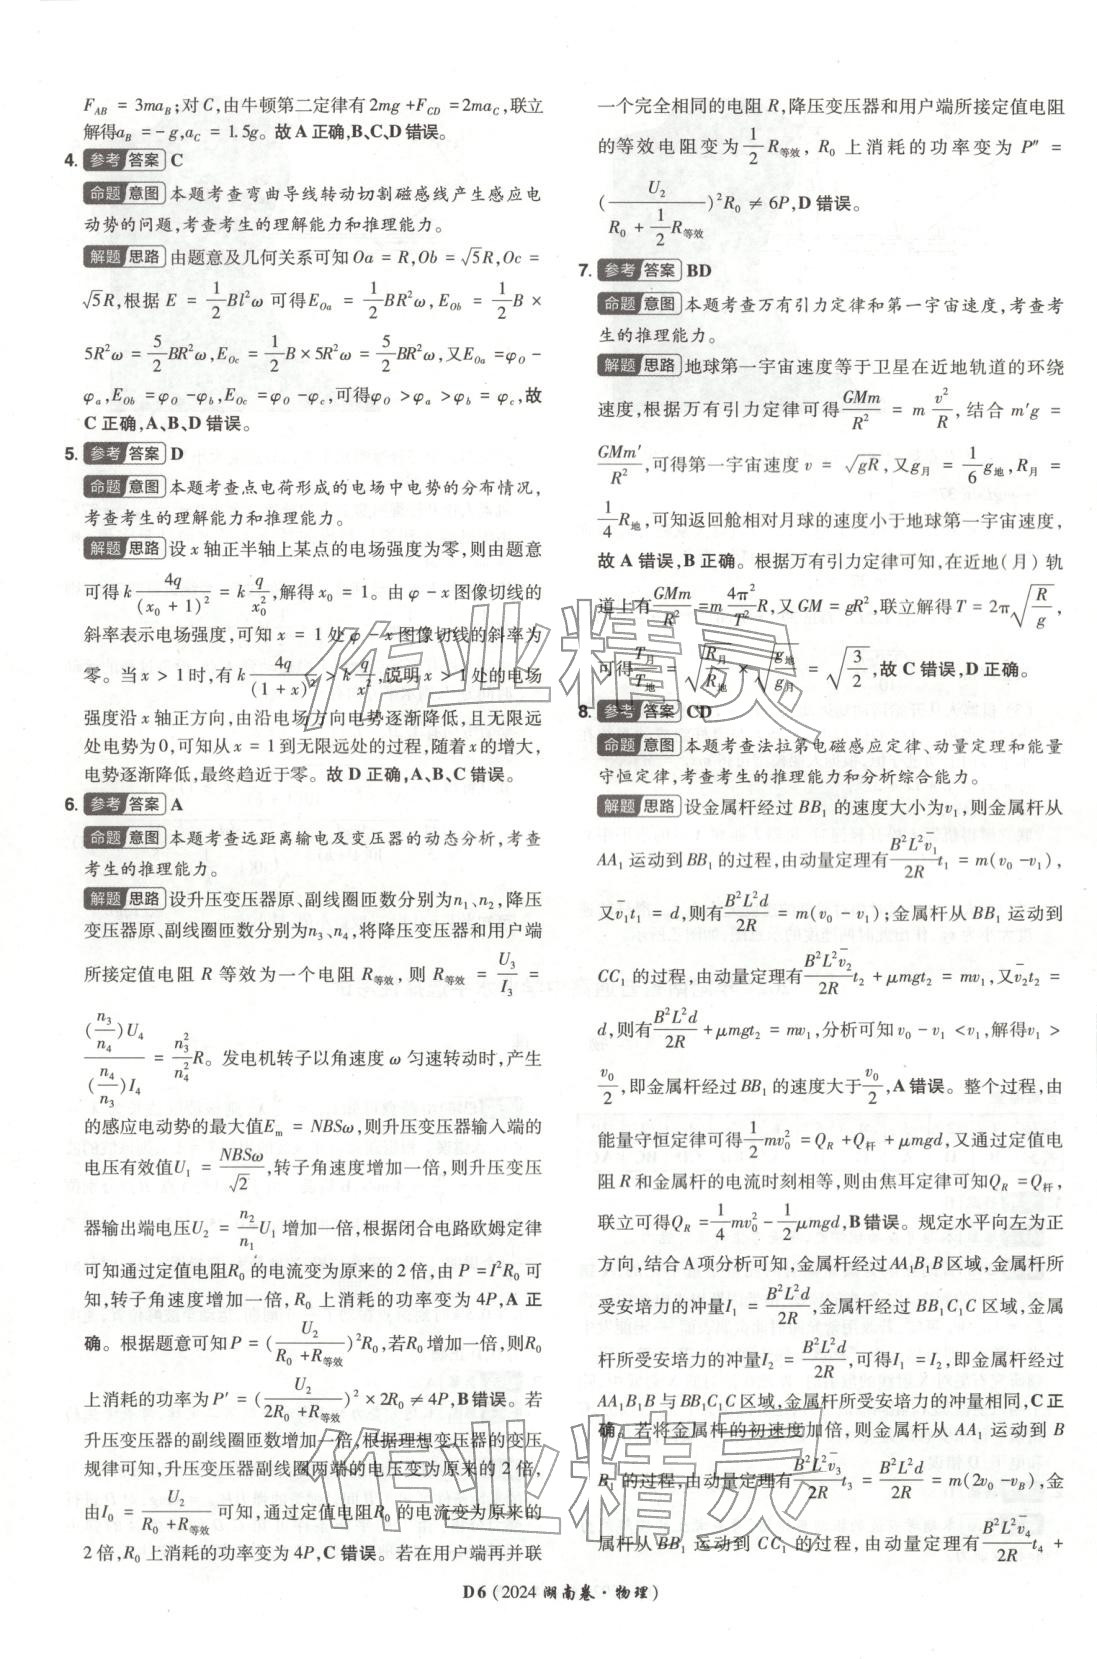 F_AB = 3ma_B;对 C,由牛顿第二定律有 2mg + F_CD = 2ma_C,联立
解得 a_B = −g, a_C = 1.5g。故 A 正确,B、C、D 错误。
4. 参考答案 C
命题意图 本题考查弯曲导线转动切割磁感线产生感应电
动势的问题,考查考生的理解能力和推理能力。
解题思路 由题意及几何关系可知 Oa = R, Ob = √5R, Oc =
√5R,根据 E = 1/2 Bl²ω 可得 E_Oa = 1/2 BR²ω, E_Ob = 1/2 B ×
5R²ω = 5/2 BR²ω, E_Oc = 1/2 B × 5R²ω = 5/2 BR²ω,又 E_Oa = φ_O −
φ_a, E_Ob = φ_O − φ_b, E_Oc = φ_O − φ_c,可得 φ_O > φ_a > φ_b = φ_c,故
C 正确,A、B、D 错误。
5. 参考答案 D
命题意图 本题考查点电荷形成的电场中电势的分布情况,
考查考生的理解能力和推理能力。
解题思路 设 x 轴正半轴上某点的电场强度为零,则由题意
可得 k 4q/(x₀ + 1)² = k q/x₀²,解得 x₀ = 1。由 φ − x 图像切线的
斜率表示电场强度,可知 x = 1 处 φ − x 图像切线的斜率为
零。当 x > 1 时,有 k 4q/(1 + x)² > k q/x²,说明 x > 1 处的电场
强度沿 x 轴正方向,由沿电场方向电势逐渐降低,且无限远
处电势为 0,可知从 x = 1 到无限远处的过程,随着 x 的增大,
电势逐渐降低,最终趋近于零。故 D 正确,A、B、C 错误。
6. 参考答案 A
命题意图 本题考查远距离输电及变压器的动态分析,考查
考生的推理能力。
解题思路 设升压变压器原、副线圈匝数分别为 n₁、n₂,降压
变压器原、副线圈匝数分别为 n₃、n₄,将降压变压器和用户端
所接定值电阻 R 等效为一个电阻 R_等效,则 R_等效 = U₃/I₃ =
(n₃/n₄)U₄ / (n₄/n₃)I₄ = n₃²/n₄² R。发电机转子以角速度 ω 匀速转动时,产生
的感应电动势的最大值 E_m = NBSω,则升压变压器输入端的
电压有效值 U₁ = NBSω/√2,转子角速度增加一倍,则升压变压
器输出端电压 U₂ = n₂/n₁ U₁ 增加一倍,根据闭合电路欧姆定律
可知通过定值电阻 R₀ 的电流变为原来的 2 倍,由 P = I²R₀ 可
知,转子角速度增加一倍,R₀ 上消耗的功率变为 4P,A 正
确。根据题意可知 P = (U₂/(R₀ + R_等效))² R₀,若 R₀ 增加一倍,则 R₀
上消耗的功率为 P′ = (U₂/(2R₀ + R_等效))² × 2R₀ ≠ 4P,B 错误。若
升压变压器的副线圈匝数增加一倍,根据理想变压器的变压
规律可知,升压变压器副线圈两端的电压变为原来的 2 倍,
由 I₀ = U₂/(R₀ + R_等效) 可知,通过定值电阻 R₀ 的电流变为原来的
2 倍,R₀ 上消耗的功率变为 4P,C 错误。若在用户端再并联
一个完全相同的电阻 R,降压变压器和用户端所接定值电阻
的等效电阻变为 1/2 R_等效,R₀ 上消耗的功率变为 P″ =
(U₂/(R₀ + 1/2 R_等效))² R₀ ≠ 6P,D 错误。
7. 参考答案 BD
命题意图 本题考查万有引力定律和第一宇宙速度,考查考
生的推理能力。
解题思路 地球第一宇宙速度等于卫星在近地轨道的环绕
速度,根据万有引力定律可得 GMm/R² = m v²/R,结合 m′g =
GMm′/R²,可得第一宇宙速度 v = √gR,又 g_月 = 1/6 g_地, R_月 =
1/4 R_地,可知返回舱相对月球的速度小于地球第一宇宙速度,
故 A 错误,B 正确。根据万有引力定律可知,在近地(月)轨
道上有 GMm/R² = m 4π²/T² R,又 GM = gR²,联立解得 T = 2π√(R/g),
可得 T_月/T_地 = √(R_月/R_地) × √(g_地/g_月) = √(3/2),故 C 错误,D 正确。
8. 参考答案 CD
命题意图 本题考查法拉第电磁感应定律、动量定理和能量
守恒定律,考查考生的推理能力和分析综合能力。
解题思路 设金属杆经过 BB₁ 的速度大小为 v₁,则金属杆从
AA₁ 运动到 BB₁ 的过程,由动量定理有 B²L²v̄₁/2R t₁ = m(v₀ − v₁),
又 v̄₁t₁ = d,则有 B²L²d/2R = m(v₀ − v₁);金属杆从 BB₁ 运动到
CC₁ 的过程,由动量定理有 B²L²v̄₂/2R t₂ + μmgt₂ = mv₁,又 v̄₂t₂ =
d,则有 B²L²d/2R + μmgt₂ = mv₁,分析可知 v₀ − v₁ < v₁,解得 v₁ >
v₀/2,即金属杆经过 BB₁ 的速度大于 v₀/2,A 错误。整个过程,由
能量守恒定律可得 1/2 mv₀² = Q_R + Q_杆 + μmgd,又通过定值电
阻 R 和金属杆的电流时刻相等,则由焦耳定律可知 Q_R = Q_杆,
联立可得 Q_R = 1/4 mv₀² − 1/2 μmgd,B 错误。规定水平向左为正
方向,结合 A 项分析可知,金属杆经过 AA₁B₁B 区域,金属杆所
受安培力的冲量 I₁ = B²L²d/2R,金属杆经过 BB₁C₁C 区域,金属
杆所受安培力的冲量 I₂ = B²L²d/2R,可得 I₁ = I₂,即金属杆经过
AA₁B₁B 与 BB₁C₁C 区域,金属杆所受安培力的冲量相同,C 正
确。若将金属杆的初速度加倍,则金属杆从 AA₁ 运动到 B
B₁ 的过程,由动量定理有 B²L²v̄₃/2R t₃ = B²L²d/2R = m(2v₀ − v_B),金
属杆从 BB₁ 运动到 CC₁ 的过程,由动量定理有 B²L²v̄₄/2R t₄ +
D6 (2024 湖南卷·物理)
作业精灵
作业精灵